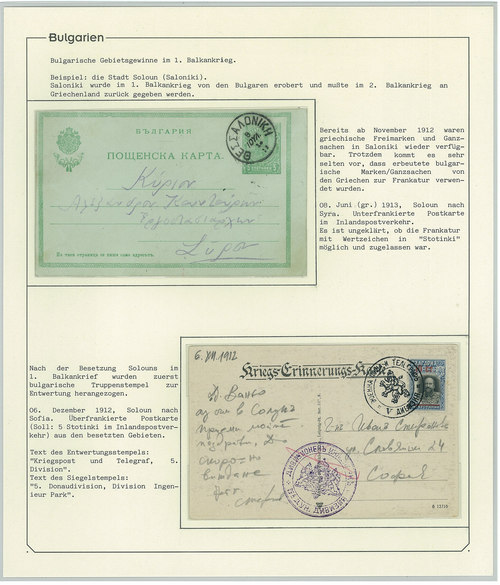 Bulgarien
Bulgarische Gebietsgewinne im 1. Balkankrieg.
Beispiel: die Stadt Soloun (Saloniki).
Saloniki wurde im 1. Balkankrieg von den Bulgaren erobert und mußte im 2. Balkankrieg an
Griechenland zurück gegeben werden.
БЪЛГАРИЯ
ПОЩЕНСКА КАРТА.
ΘΕΣΣΑΛΟΝΙΚΗ
Κύριον
Σύρον
На тази страница се пише само адресътъ
Bereits ab November 1912 waren
griechische Freimarken und Ganz-
sachen in Saloniki wieder verfüg-
bar. Trotzdem kommt es sehr
selten vor, dass erbeutete bulgar-
ische Marken/Ganzsachen von
den Griechen zur Frankatur verwen-
det wurden.
08. Juni (gr.) 1913, Soloun nach
Syra. Unterfrankierte Postkarte
im Inlandspostverkehr.
Es ist ungeklärt, ob die Frankatur
mit Wertzeichen in "Stotinki"
möglich und zugelassen war.
Nach der Besetzung Solouns im
1. Balkankrief wurden zuerst
bulgarische Truppenstempel zur
Entwertung herangezogen.
06. Dezember 1912, Soloun nach
Sofia. Überfrankierte Postkarte
(Soll: 5 Stotinki im Inlandspostver-
kehr) aus den besetzten Gebieten.
Text des Entwertungsstempels:
"Kriegspost und Telegraf, 5.
Division".
Text des Siegelstempels:
"5. Donaudivision, Division Ingen-
ieur Park".
6. XII. 1912
Kriegs-Erinnerungs-Karte
ул. 24
София
B 13710